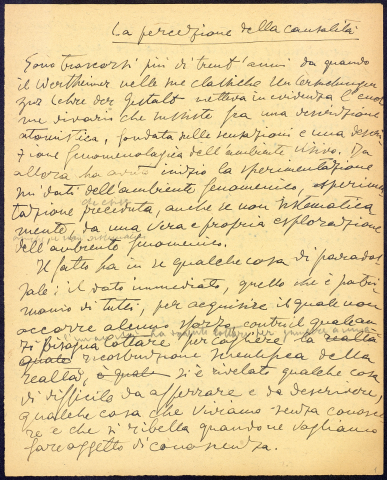 La percezione della causalità
Sono trascorsi più di trent'anni da quando
il Wertheimer nelle sue classiche Untersuchungen
zur Lehre der Gestalt metteva in evidenza l'enor
me divario che sussiste fra una descrizione
atomistica, fondata sulle sensazioni e una descri
zione fenomenologica dell'ambiente visivo. Da
allora ha avuto inizio la sperimentazione
sui dati dell'ambiente fenomenico, sperimen
tazione preceduta, anche se non sistematica
mente, da una vera e propria esplorazione
dell'ambiente fenomenico.
Il fatto ha in sé qualche cosa di parados
sale: il dato immediato, quello che è patri
monio di tutti, per acquisire il quale non
occorre alcuno sforzo, contro il quale an
zi bisogna lottare per cogliere la realtà
quale ricostruzione scientifica della
realtà, è quale si è rivelato qualche cosa
di difficile da afferrare e da descrivere,
qualche cosa che viviamo senza conosce
re e che si ribella quando ne vogliamo
fare oggetto di conoscenza.